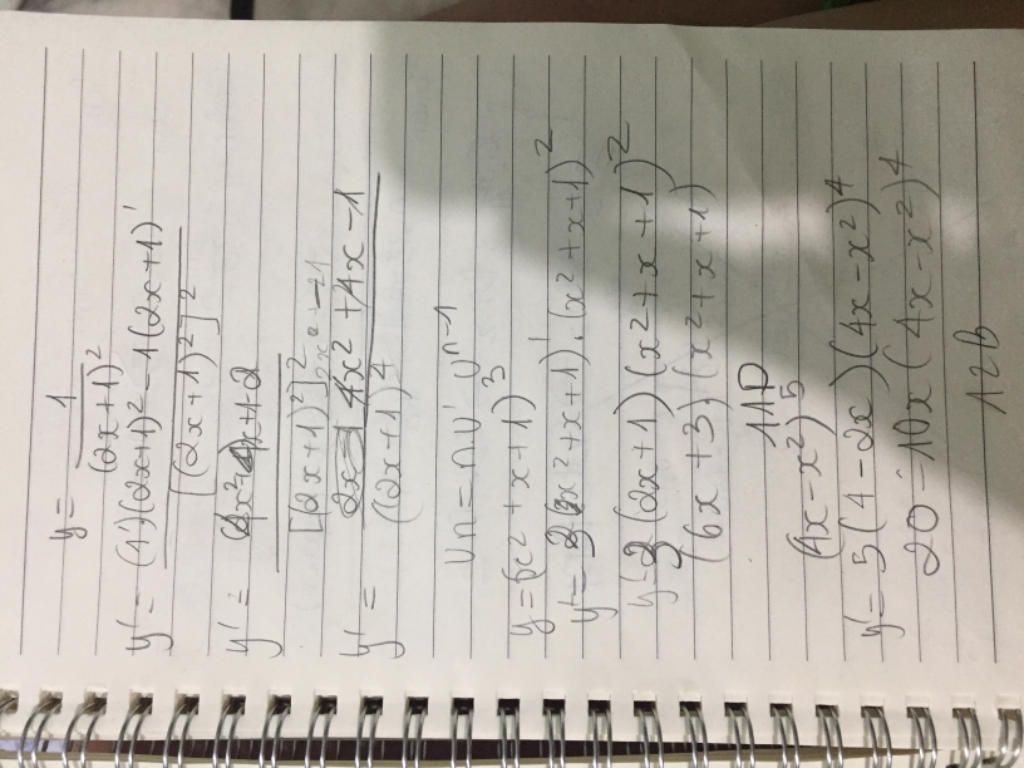 y = 1
(2x+1)²
y' = (1)'(2x+1)² - 1(2x+1)'
[(2x+1)²]²
y' = x+2
[(2x+1)²]²
y' = 4x² + 4x - 1
(2x+1)⁴
Un = nU' Uⁿ⁻¹
y = (x² + x + 1)³
y' = 3(x² + x + 1)'.(x² + x + 1)²
y' 3(2x+1)(x² + x + 1)²
(6x+3)(x² + x + 1)
11P
(4x - x²)⁵
y' = 5(4 - 2x)(4x - x²)⁴
20 - 10x(4x - x²)⁴
12b